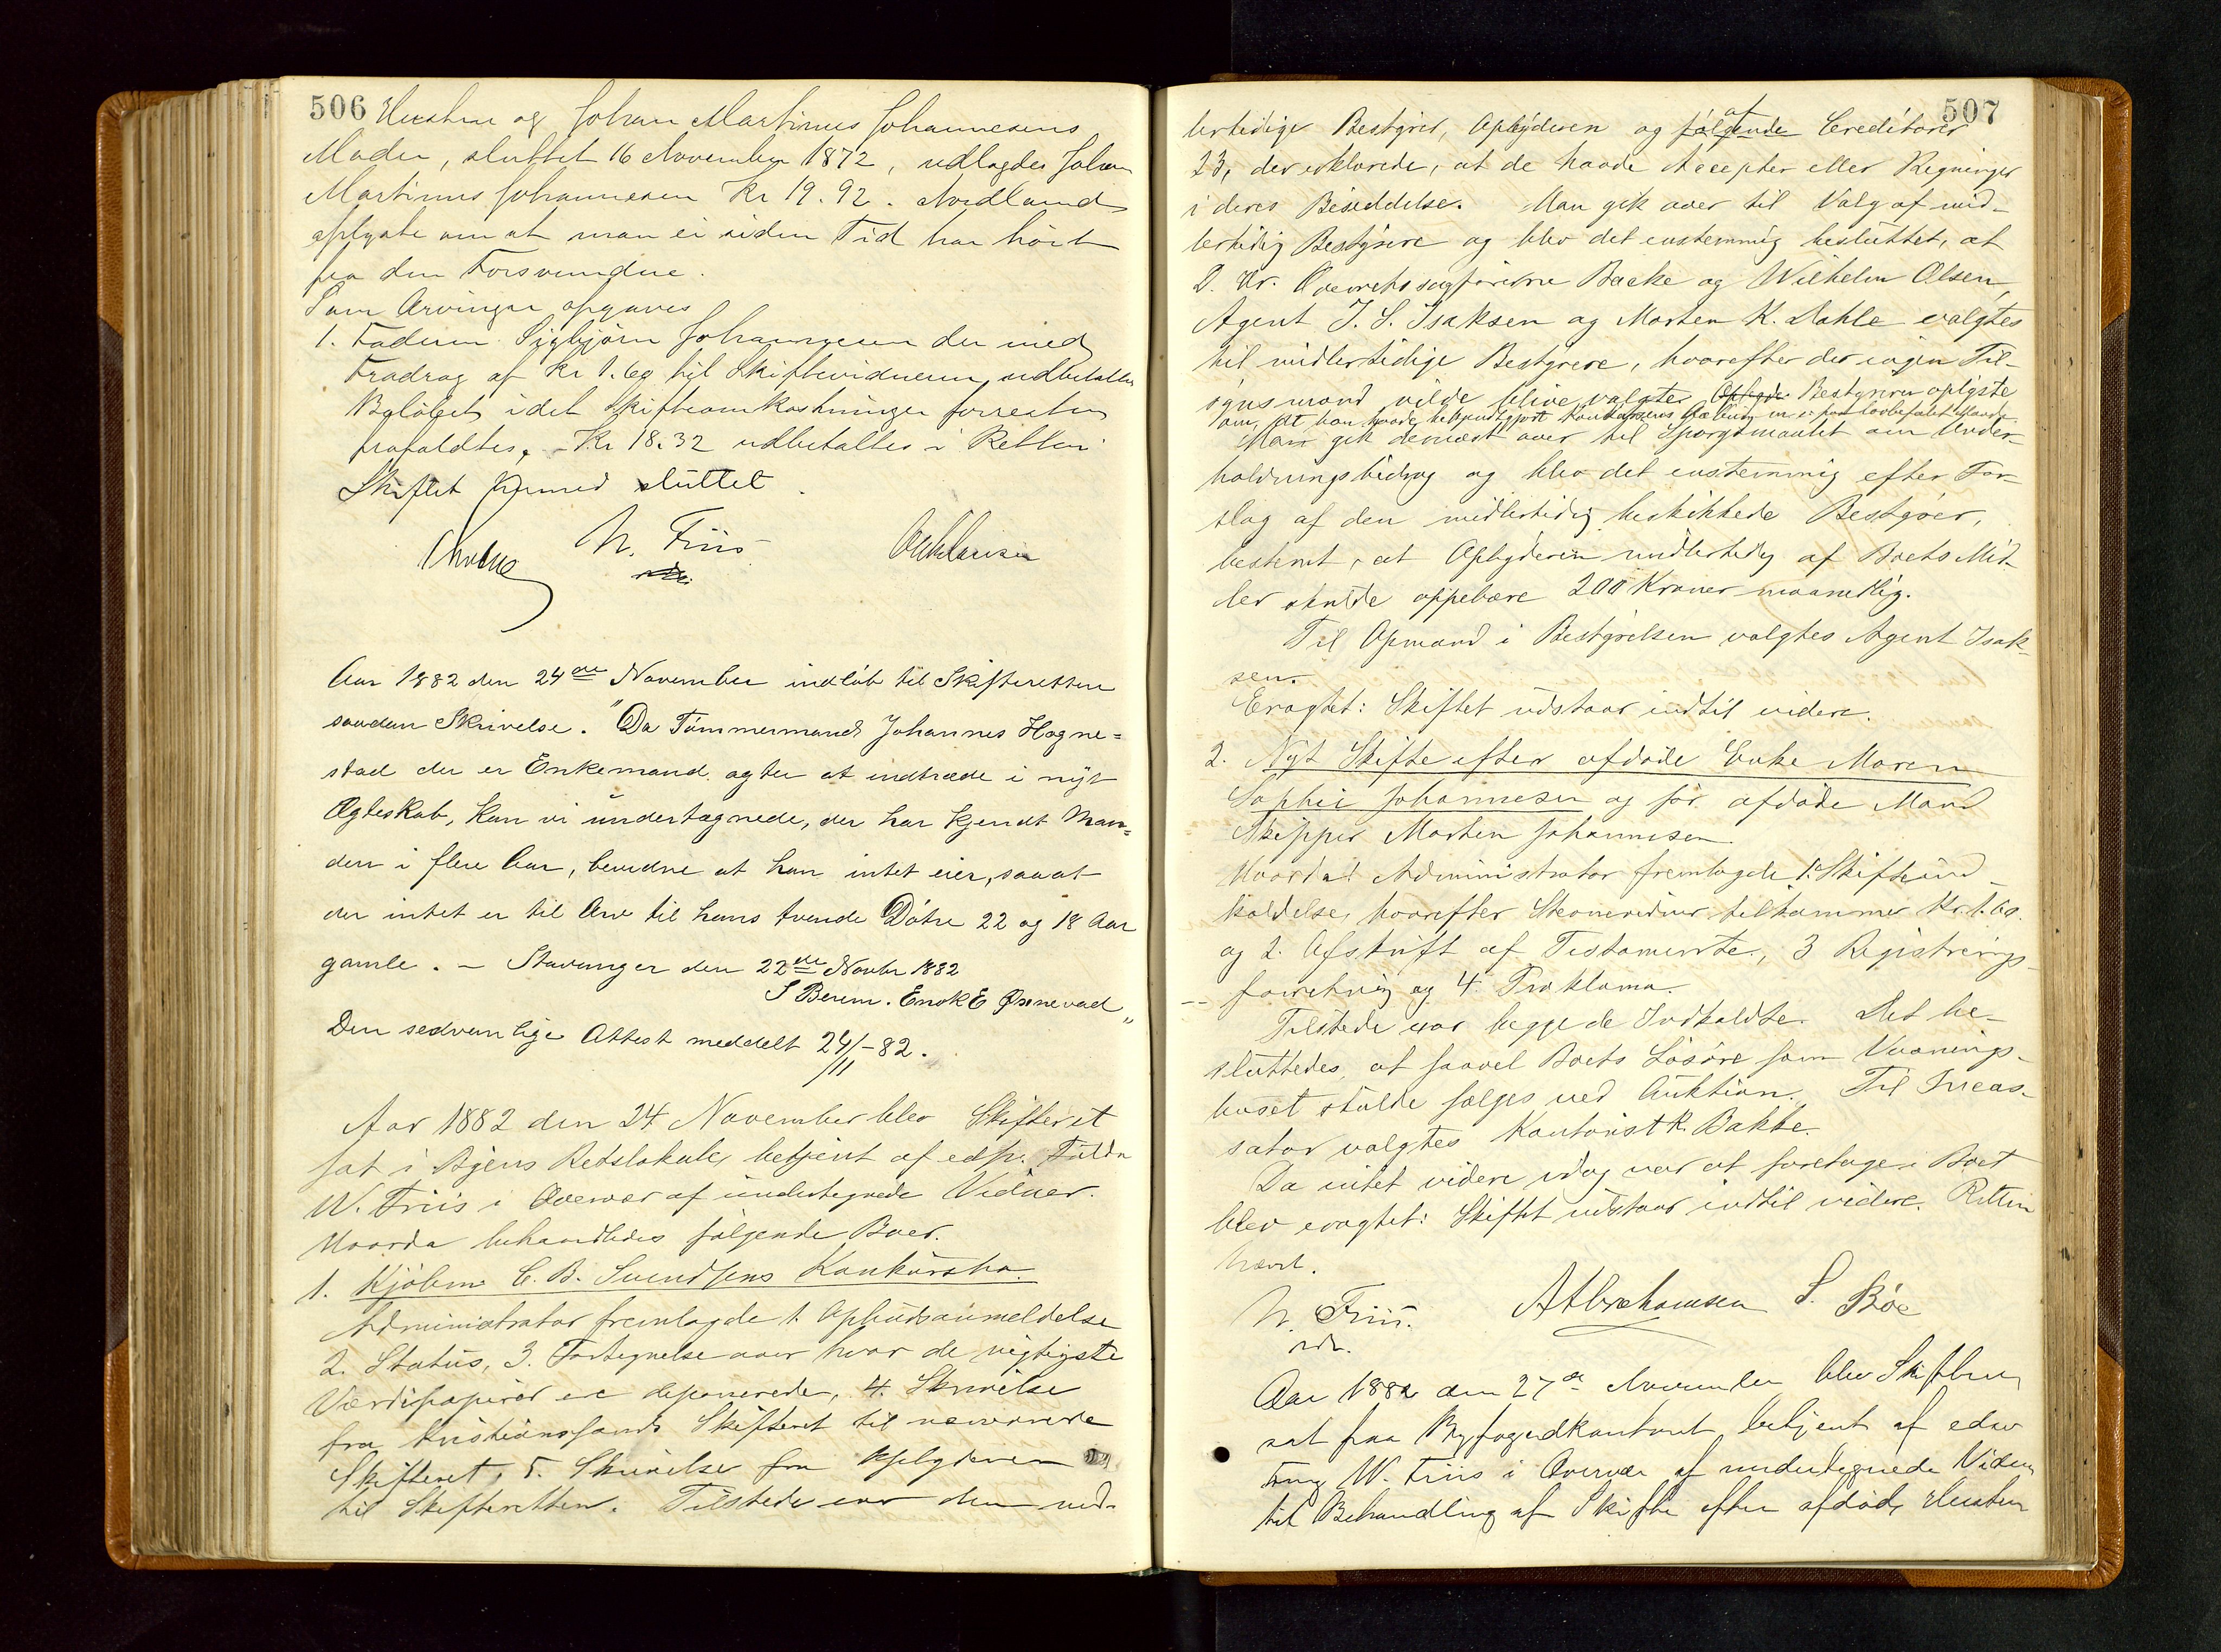 506 Hustru og Johan Martinus Johannesens
Moder, sluttet 16 November 1872, udlagdes Johan
Martinus Johannesen Kr 19.92. Nordland
oplyste om at man ei siden Tid har hørt
fra den Forsvundne.
Som Arvinger opgaves
1. Faderen Sigbjørn Johannesen der med
Fradrag af Kr 1.60 til Skiftevidnerne udbetaltes
Beløbet idet Skifteomkostninger forresten
frafaldtes, - Kr 18.32 udbetaltes i Retten
Skiftet hermed sluttet.
W. Friis
Aar 1882 den 24de November indløb til Skifteretten
saadan Skrivelse. "Da Tømmermand Johannes Hogne=
stad der er Enkemand agter at indtræde i nyt
Ægteskab, kan vi undertegnede, der har kjendt Man=
den i flere Aar, bevidne at han intet eier, saa at
der intet er til Arv til hans tvende Døtre 22 og 18 Aar
gamle. - Stavanger den 22de Novbr 1882
S Berem. Enok E Ønnevad"
Den sedvanlige Attest meddelt 24/11-82.
Aar 1882 den 24 November blev Skifteret
sat i Byens Retslokale, betjent af edsv. Fuldm
W. Friis i Overvær af undertegnede Vidner.
Hvorda behandledes følgende Boer.
1. Kjøbm C. B. Svendsens Konkursbo.
Administrator fremlagde 1. Opbudsanmeldelse
2. Status, 3. Fortegnelse over hvor de vigtigste
Værdipapirer ere deponerede, 4. Skrivelse
fra Kristianssands Skifteret til nærværende
Skifteret, 5. Skrivelse fra Opbyderen
til Skifteretten. Tilstede var den mid-
507
lertidige Bestyrer, Opbyderen og følgende af Creditorer
23, der erklærede, at de havde Accepter eller Regninger
i deres Besiddelse. Man gik over til Valg af mid-
lertidig Bestyrere og blev det enstemmig besluttet, at
D. Hr. Overretssagførerne Backe og Wilhelm Olsen,
Agent J. S. Isaksen og Morten K. Dahle valgtes
til midlertidige Bestyrere, hvorefter der ingen Til-
synsmand vilde blive valgt. Bestyreren oplyste
om, at han havde bekjendtgjort
Man gik dernæst over til Spørgsmaalet om Under-
holdningsbidrag og blev det enstemmig efter For-
slag af den midlertidig beskikkede Bestyrer,
bestemt, at Opbyderen midlertidig af Boets Mid-
ler skulde oppebære 200 Kroner maanedlig.
Til Opmand i Bestyrelsen valgtes Agent Isak-
sen.
Eragtet: Skiftet udstaar indtil videre.
2. Nyt Skifte efter afdøde Enke Maren
Sophie Johannesen og før afdøde Mand
Skipper Morten Johannesen.
Hvorda Administrator fremlagde 1. Skifteind-
kaldelse, hvorefter Stevnevidner tilkommer Kr. 1.60.
og 2. Afskrift af Testamente, 3 Registrerings-
forretning og 4. Proklama.
Tilstede var begge de Indkaldte. Det be-
sluttedes, at saavel Boets Løsøre som Vaanings-
huset skulde sælges ved Auktion. Til Incas-
sator valgtes Kontorist K. Bakke.
Da intet videre idag var at foretage i Boet
blev eragtet: Skiftet udstaar indtil videre. Retten
hævet.
W. Friis. A Abrahamsen S. Bøe
Aar 1882 den 27de November blev Skifteret
sat paa Byfogedkontoret betjent af edsv
Fmg W. Friis i Overvær af undertegnede Vidner
til Behandling af Skifte efter afdøde Hustru